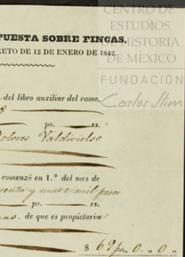 CENTRO DE
ESTUDIOS
DE HISTORIA
DE MÉXICO
FUNDACIÓN
Carlos Slim
PUESTA SOBRE FINCAS.
RETO DE 13 DE ENERO DE 1842.
del libro auxiliar del ramo.
8
ps. rs.
Dolores Valdivielso
comenzó en 1.º del mes de
y nueve mil pesos
ps. rs.
de que es propietaria
$ 69 ps. 0. 0.